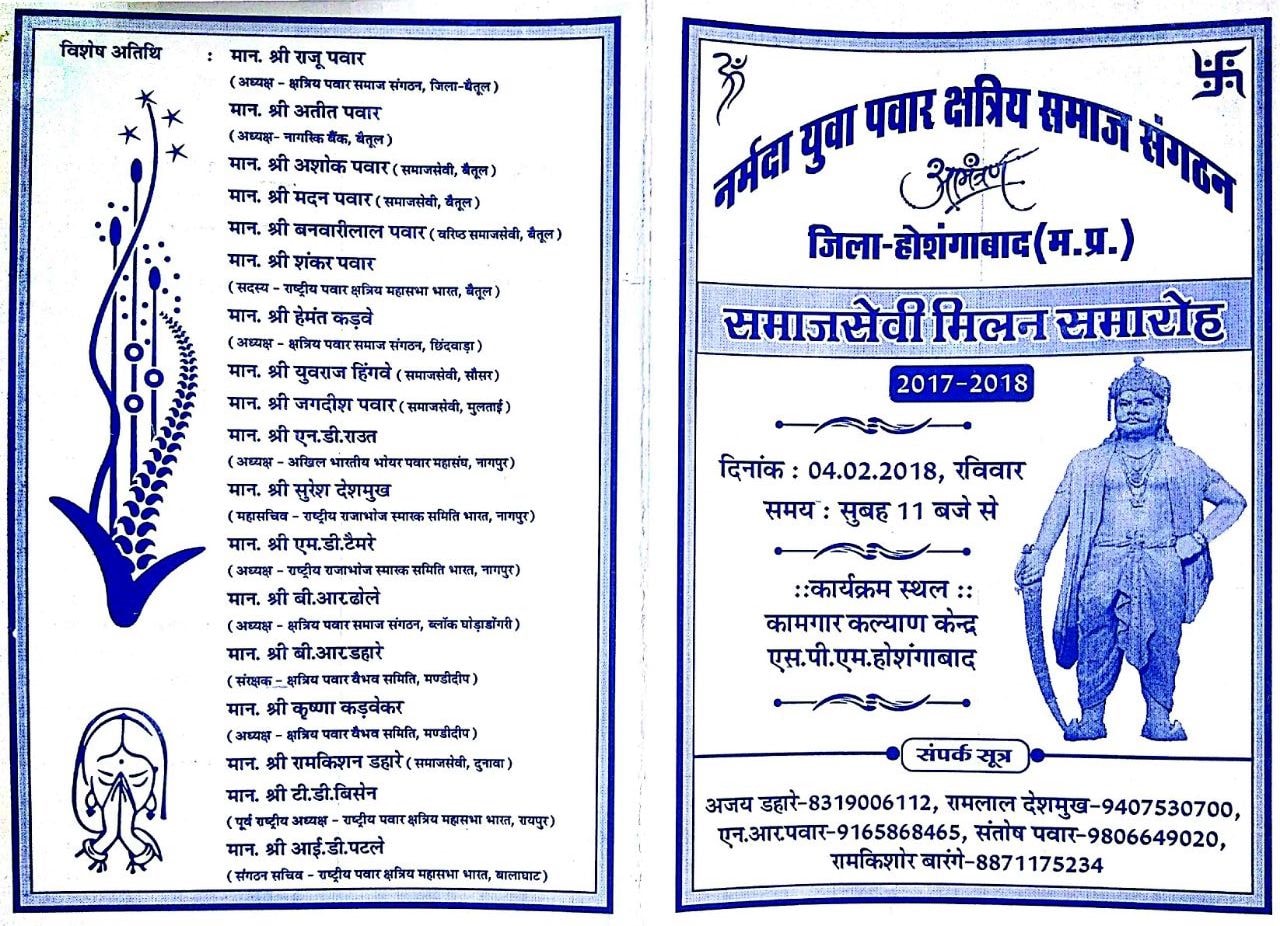 विशेष अतिथि : मान. श्री राजू पवार
(अध्यक्ष - क्षत्रिय पवार समाज संगठन, जिला-बैतूल)
मान. श्री अतीत पवार
(अध्यक्ष- नागरिक बैंक, बैतूल)
मान. श्री अशोक पवार (समाजसेवी, बैतूल)
मान. श्री मदन पवार (समाजसेवी, बैतूल)
मान. श्री बनवारीलाल पवार (वरिष्ठ समाजसेवी, बैतूल)
मान. श्री शंकर पवार
(सदस्य - राष्ट्रीय पवार क्षत्रिय महासभा भारत, बैतूल)
मान. श्री हेमंत कड़वे
(अध्यक्ष - क्षत्रिय पवार समाज संगठन, छिंदवाड़ा)
मान. श्री युवराज हिंगवे (समाजसेवी, सौसर)
मान. श्री जगदीश पवार (समाजसेवी, मुलताई)
मान. श्री एन.डी.राउत
(अध्यक्ष - अखिल भारतीय भोयर पवार महासंघ, नागपुर)
मान. श्री सुरेश देशमुख
(महासचिव - राष्ट्रीय राजाभोज स्मारक समिति भारत, नागपुर)
मान. श्री एम.डी.टैमरे
(अध्यक्ष - राष्ट्रीय राजाभोज स्मारक समिति भारत, नागपुर)
मान. श्री बी.आर.ढोले
(अध्यक्ष - क्षत्रिय पवार समाज संगठन, ब्लॉक घोड़ाडोंगरी)
मान. श्री बी.आर.डहारे
(संरक्षक - क्षत्रिय पवार वैभव समिति, मण्डीदीप)
मान. श्री कृष्णा कड़वेकर
(अध्यक्ष - क्षत्रिय पवार वैभव समिति, मण्डीदीप)
मान. श्री रामकिशन डहारे (समाजसेवी, दुनावा)
मान. श्री टी.डी.बिसेन
(पूर्व राष्ट्रीय अध्यक्ष - राष्ट्रीय पवार क्षत्रिय महासभा भारत, रायपुर)
मान. श्री आई.डी.पटले
(संगठन सचिव - राष्ट्रीय पवार क्षत्रिय महासभा भारत, बालाघाट)
ॐ
नर्मदा युवा पवार क्षत्रिय समाज संगठन
आमंत्रण
जिला-होशंगाबाद(म.प्र.)
समाजसेवी मिलन समारोह
2017-2018
दिनांक : 04.02.2018, रविवार
समय : सुबह 11 बजे से
::कार्यक्रम स्थल ::
कामगार कल्याण केन्द्र
एस.पी.एम.होशंगाबाद
संपर्क सूत्र
अजय डहारे-8319006112, रामलाल देशमुख-9407530700,
एन.आर.पवार-9165868465, संतोष पवार-9806649020,
रामकिशोर बारंगे-8871175234